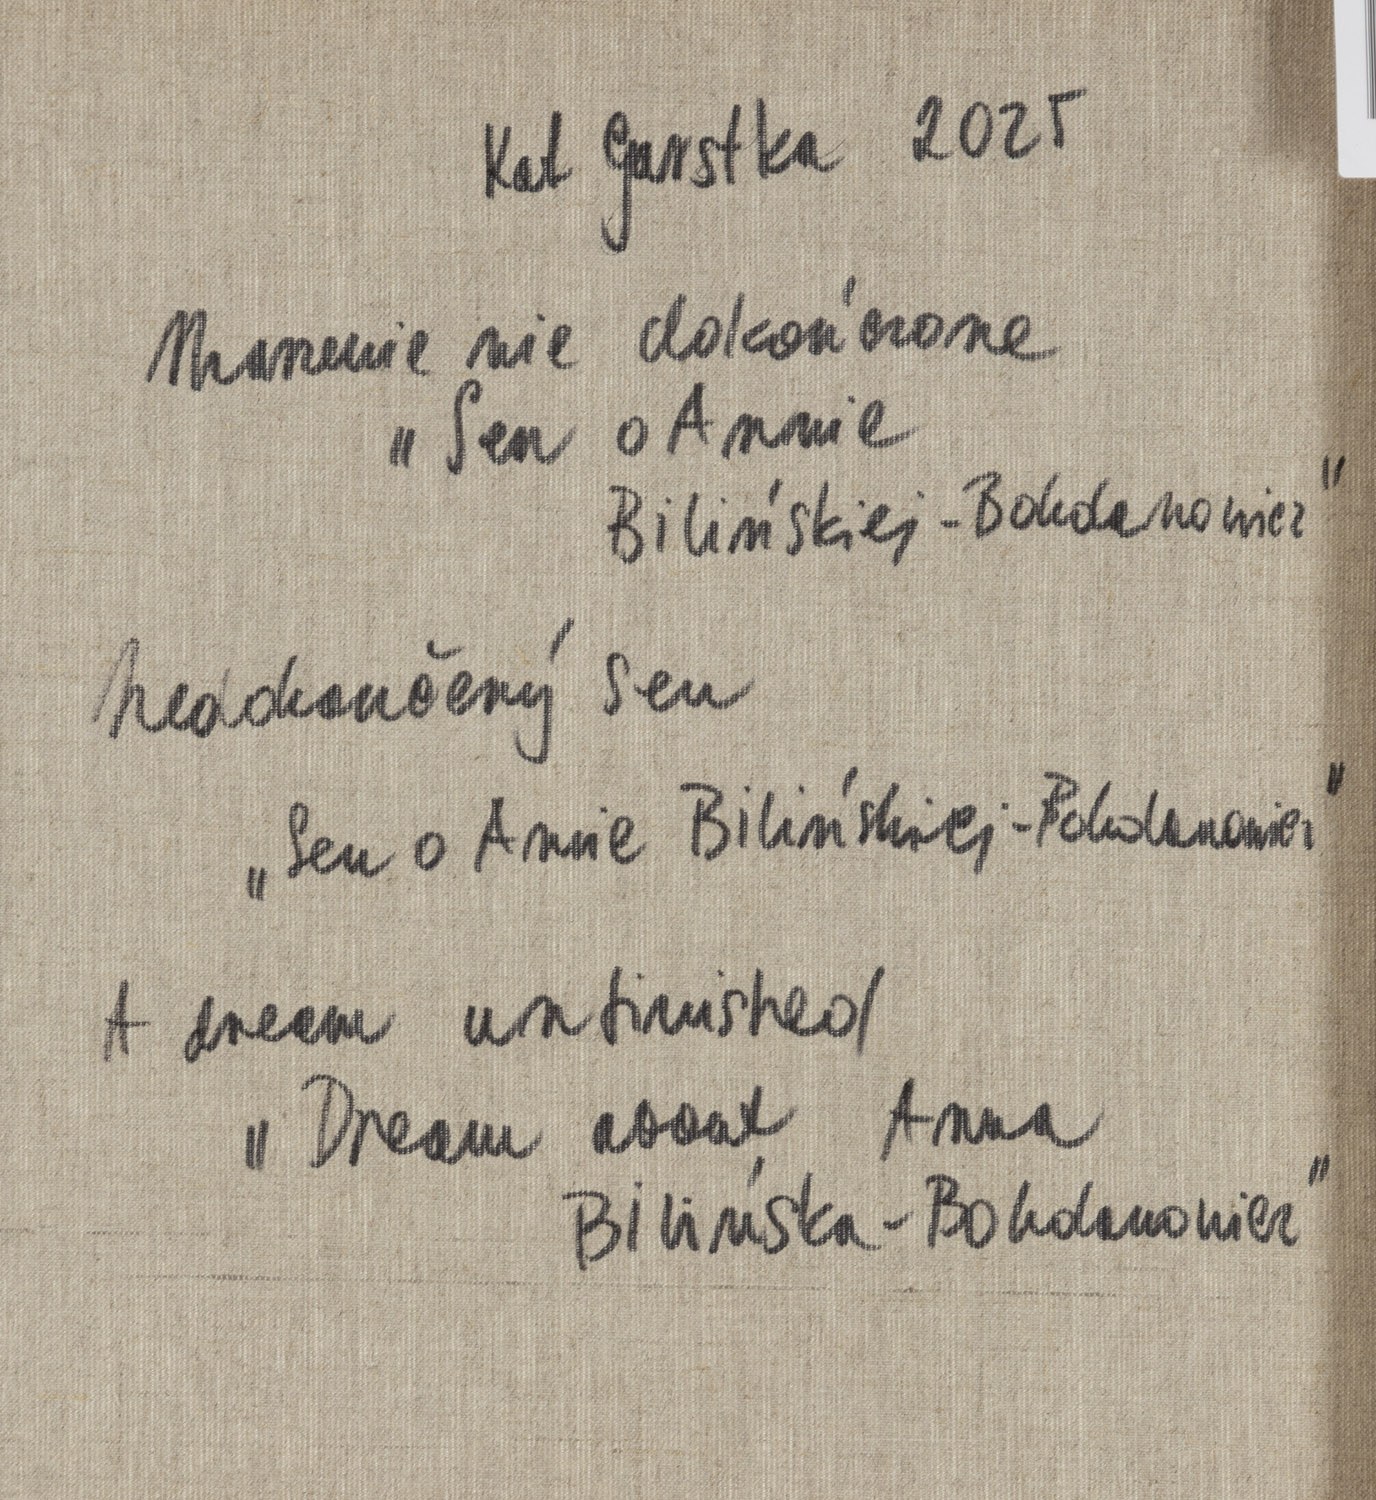 Kat Garstka 2025
Marzenie nie dokończone
"Sen o Annie
Bilińskiej-Bohdanowicz"
Nedokončený sen
„Sen o Annie Bilińskiej-Bohdanowicz"
A dream unfinished
"Dream about Anna
Bilińska-Bohdanowicz"